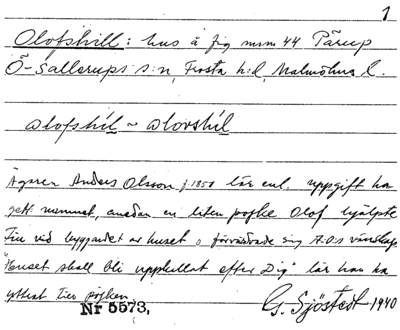 1
Olofshill: hus å fig mm 44 Pärup
Ö-Sallerups s:n, Frosta h:d, Malmöhus l.
olofshíl ~ olovshíl
Ägaren Anders Olsson f. 1850 lär enl. uppgift ha
gett namnet, emedan en liten pojke Olof hjälpte
till vid byggandet av huset o förvärvade sig A.O:s vänskap.
"Huset skall bli uppkallat efter Dig" lär han ha
yttrat till pojken.
Nr 5573,
G. Sjöstedt 1940